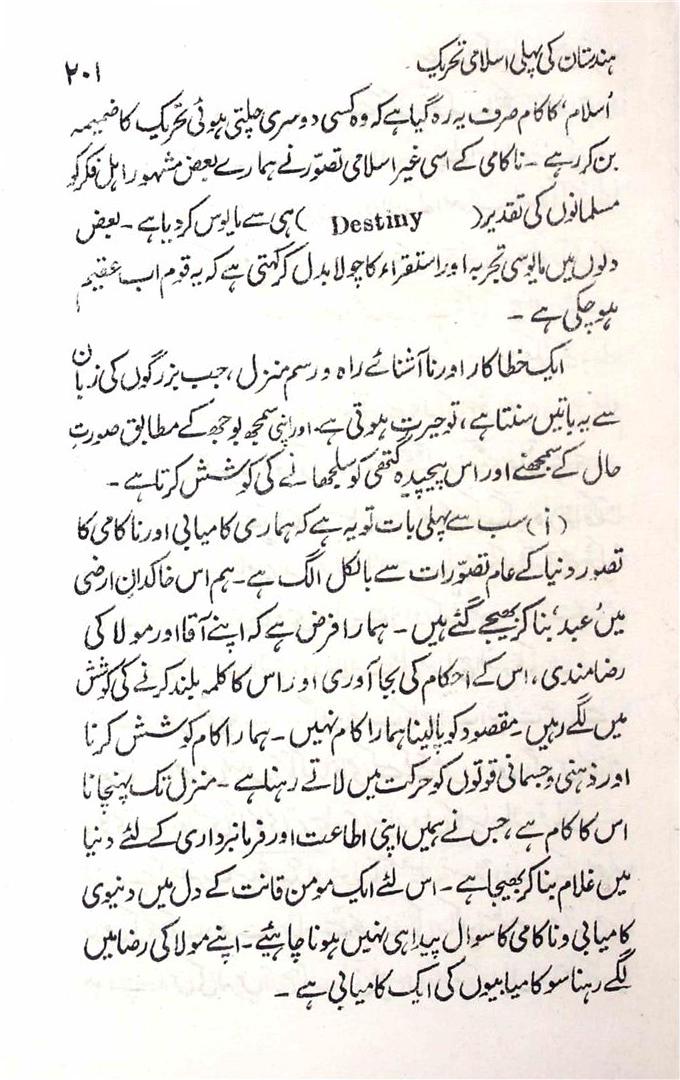 ہندستان کی پہلی اسلامی تحریک
۲۰۱
'اسلام' کا کام صرف یہ رہ گیا ہے کہ وہ کسی دوسری چلتی ہوئی تحریک کا ضمیمہ
بن کر رہے ۔ ناکامی کے اسی غیر اسلامی تصوّر نے ہمارے بعض مشہور اہل فکر کو
مسلمانوں کی تقدیر ( Destiny ) ہی سے مایوس کر دیا ہے ۔ بعض
دلوں میں مایوسی تجربہ اور استقراء کا چولا بدل کر کہتی ہے کہ یہ قوم اب عقیم
ہو چکی ہے ۔
ایک خطا کار اور نا آشنائے راہ و رسم منزل ، جب بزرگوں کی زبان
سے یہ باتیں سنتا ہے ، تو حیرت ہوتی ہے۔ اور اپنی سمجھ بوجھ کے مطابق صورتِ
حال کے سمجھنے اور اس پیچیدہ گتھی کو سلجھانے کی کوشش کرتا ہے ۔
(i) سب سے پہلی بات تو یہ ہے کہ ہماری کامیابی اور ناکامی کا
تصور دنیا کے عام تصوّرات سے بالکل الگ ہے ۔ ہم اس خاکدانِ ارضی
میں 'عبد' بنا کر بھیجے گئے ہیں ۔ ہمارا فرض ہے کہ اپنے آقا اور مولا کی
رضامندی ، اس کے احکام کی بجا آوری اور اس کا کلمہ بلند کرنے کی کوشش
میں لگے رہیں ۔ مقصود کو پالینا ہمارا کام نہیں ۔ ہمارا کام کوشش کرنا
اور ذہنی و جسمانی قوتوں کو حرکت میں لاتے رہنا ہے ۔ منزل تک پہنچانا
اس کا کام ہے ، جس نے ہمیں اپنی اطاعت اور فرمانبرداری کے لئے دنیا
میں غلام بنا کر بھیجا ہے ۔ اس لئے ایک مومن قانت کے دل میں دنیوی
کامیابی و ناکامی کا سوال پیدا ہی نہیں ہونا چاہئیے ۔ اپنے مولا کی رضا میں
لگے رہنا سو کامیابیوں کی ایک کامیابی ہے ۔